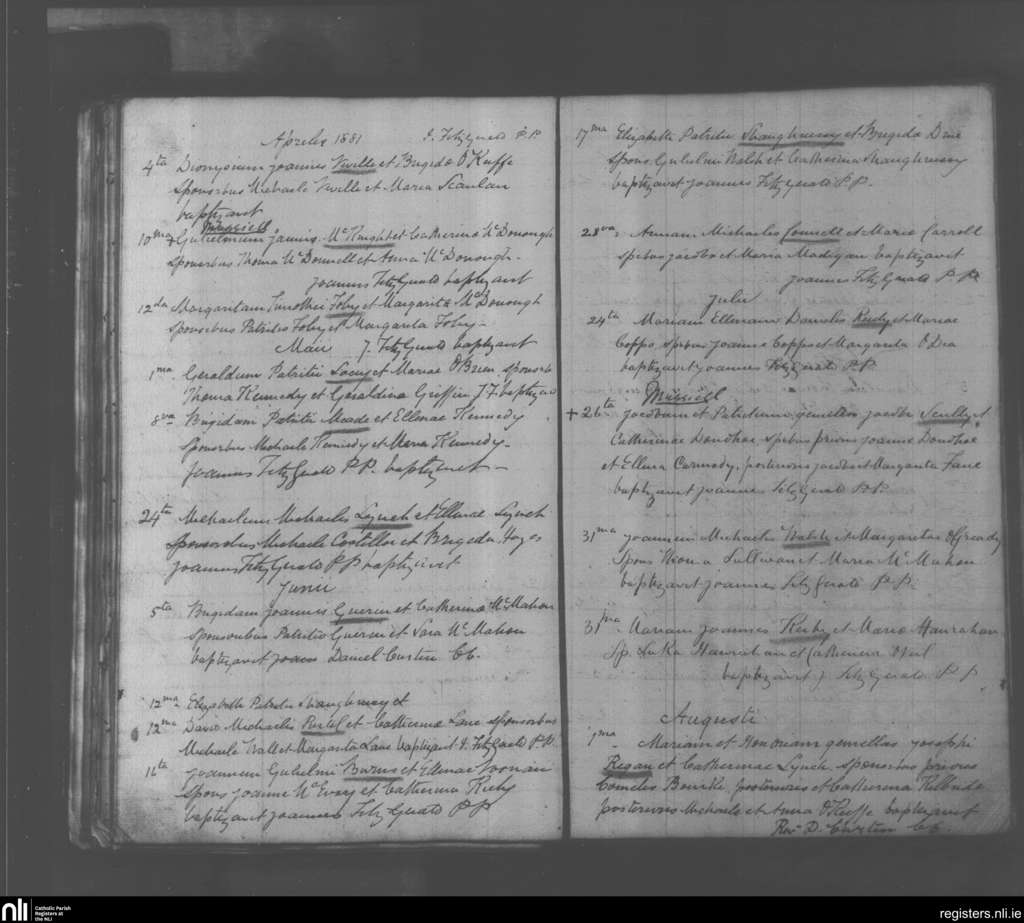 Aprilis 1881 J. FitzGerald P.P.
4ta Dionysium Joannis Neville et Brigidæ O'Keeffe
Sponsoribus Michaele Neville et Maria Scanlan
baptizavit
Mixed
10ma + Gulielmum Joannis McKnight et Catherinæ McDonough
Sponsoribus Thoma McDonnell et Anna McDonough -
Joannes FitzGerald baptizavit
12da Margaritam Timothei Foley et Margaritæ McDonough
Sponsoribus Patritio Foley et Margarita Foley -
Maii J. FitzGerald baptizavit
1ma Geraldum Patritii Lacey et Mariae O'Brien, sponsorib
Thoma Kennedy et Geraldina Griffin J F baptizavit
8va Brigidam Patritii Meade et Ellenae Kennedy
Sponsoribus Michaele Kennedy et Maria Kennedy -
Joannes FitzGerald P.P. baptizavit -
24ta Michaelem Michaelis Lynch et Ellenae Lynch
Sponsoribus Michaele Costelloe et Brigida Hayes
Joannes FitzGerald P P baptizavit
Junii
5ta Brigidam Joannis Guerin et Catherinæ McMahon
Sponsoribus Patritio Guerin et Sara McMahon
baptizavit Daniel Curtin CC.
12ma Elizabeth Patritii Shaughnessy et
12ma David Michaelis et Catherinæ Lane sponsoribus
Michaele et Margarita Lane baptizavit J. FitzGerald P.P.
16ta Joannem Gulielmi Burns et Ellenae Noonan
Spons Joanne McEvoy et Catherina Kirby
baptizavit Joannes FitzGerald P P
17ma Elizabeth Patritii Shaughnessy et Brigidæ Dine
Spons. Gulielmi Walsh et Catherina Shaughnessy
baptizavit Joannes FitzGerald P.P.
28va Annam Michaelis Connell et Mariæ Carroll
Spbus Jacobo et Maria Madigan baptizavit
Joannes FitzGerald P P
Julii
24ta Mariam Ellenam Danielis Reidy et Mariae
Coffy, Spbus Joanne Coffy et Margarita O'Dea
baptizavit Joannes FitzGerald P.P.
Mixed
+ 26ta Jacobum et Patritium gemellos Jacobi Scully et
Catherinae Donohoe, Spbus prioris Joanne Donohoe
et Ellena Carmody, posterioris Jacobo et Margarita Lane
baptizavit Joannes FitzGerald P.P.
31ma Joannem Michaelis Walsh et Margaritae O'Grady
Spons Thoma Sullivan et Maria McMahon
baptizavit Joannes FitzGerald P.P.
31ma Mariam Joannis Kirby et Mariæ Hanrahan
Sp. Luka Hanrahan et Catherina Neil
baptizavit J FitzGerald P P
Augusti
7ma - Mariam et Honoriam gemellas Josephi
Regan et Catherinae Lynch, sponsoribus prioris
Bourke, posterioris et Catherina
posterioris Michaele et Anna O'Keeffe baptizavit
Rev D. Curtin CC.
nli Catholic Parish
Registers at
the NLI
registers.nli.ie